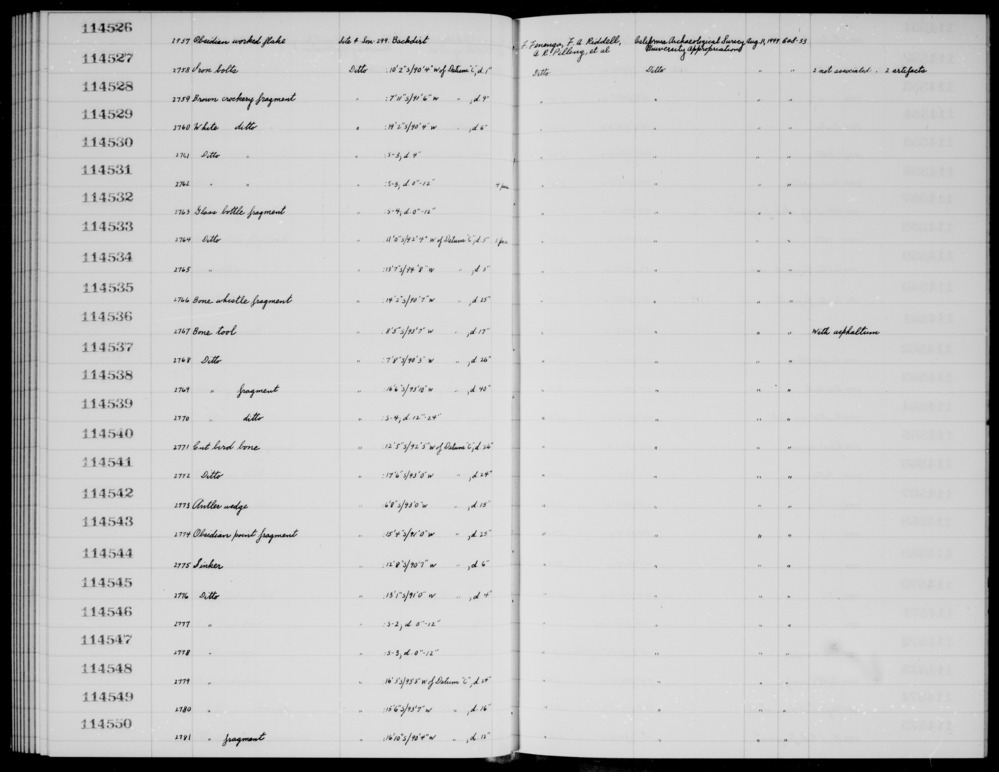 114526
2757 Obsidian worked flake Site # Son-299. Backdirt F. Fenenga, F. A. Riddell, A. R. Pilling, et al California Archaeological Survey, University Appropriations Aug. 31, 1949.
114527
2758 Iron bolts Ditto :10'2"S/90'4"W of Datum "C", d. 1" Ditto Ditto " " 2 not associated. 2 artifacts
114528
2759 Brown crockery fragment " :7'11"S/91'6"W " , d. 9" " " " "
114529
2760 White ditto " W " , d. 6" " " " "
114530
2761 Ditto " " :S-3, d. 4" " " " "
114531
2762 " " " :S-3, d. 0"-12" " " " "
114532
2763 Glass bottle fragment " :S-4, d. 0"-12" " " " "
114533
2764 Ditto " W of Datum "C", d. 5" " " " "
114534
2765 " " W " , d. 5" " " " "
114535
2766 Bone whistle fragment " W " , d. 25" " " " "
114536
2767 Bone tool " W " , d. 17" " " " " With asphaltum
114537
2768 Ditto " W " , d. 26" " " " "
114538
2769 " fragment " W " , d. 40" " " " "
114539
2770 " ditto " :S-4, d. 12"-24" " " " "
114540
2771 Cut bird bone " :12'5"S/92'5"W of Datum "C", d. 26" " " " "
114541
2772 Ditto " :17'6"S/93'0"W " , d. 24" " " " "
114542
2773 Antler wedge " :6'8"S/93'0"W " , d. 15" " " " "
114543
2774 Obsidian point fragment " :15'4"S/91'0"W " , d. 25" " " " "
114544
2775 Sinker " :12'8"S/90'7"W " , d. 6" " " " "
114545
2776 Ditto " :13'1"S/91'0"W " , d. 4" " " " "
114546
2777 " " :S-2, d. 0"-12" " " " "
114547
2778 " " :S-3, d. 0"-12" " " " "
114548
2779 " " W of Datum "C", d. " " " "
114549
2780 " " :15'6"S/93'7"W " , d. 16" " " " "
114550
2781 " fragment " :16'10"S/90'4"W " , d. 12" " " " "